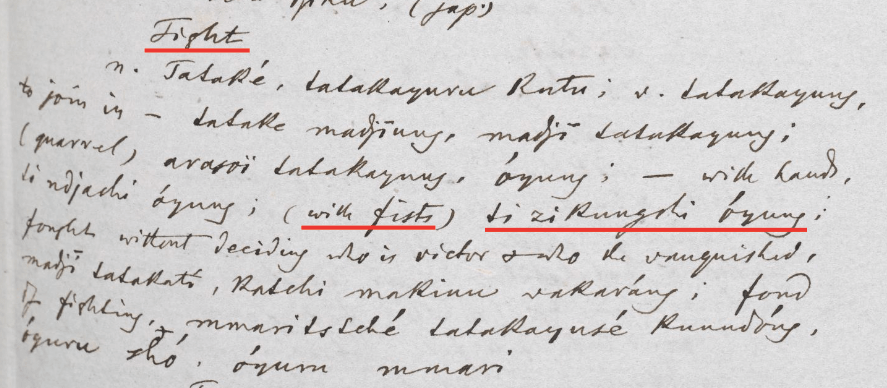 (jap.)
Fight
n. Tataké, tatakayuru Kutu; v. tatakayung,
to join in – tatake madjiung, madjī tatakayung;
(quarrel) arasoī tatakayung, óyung; — with hands,
ti ndjachi óyung; (with fists) ti ziKungshi óyung;
fought without deciding who is victor & who the vanquished,
madjī tatakatī, Katchi makinu wakaráng; fond
of fighting, mmaritstché tatakayusé Kunudóng,
óyuru shó. óyuru mmari